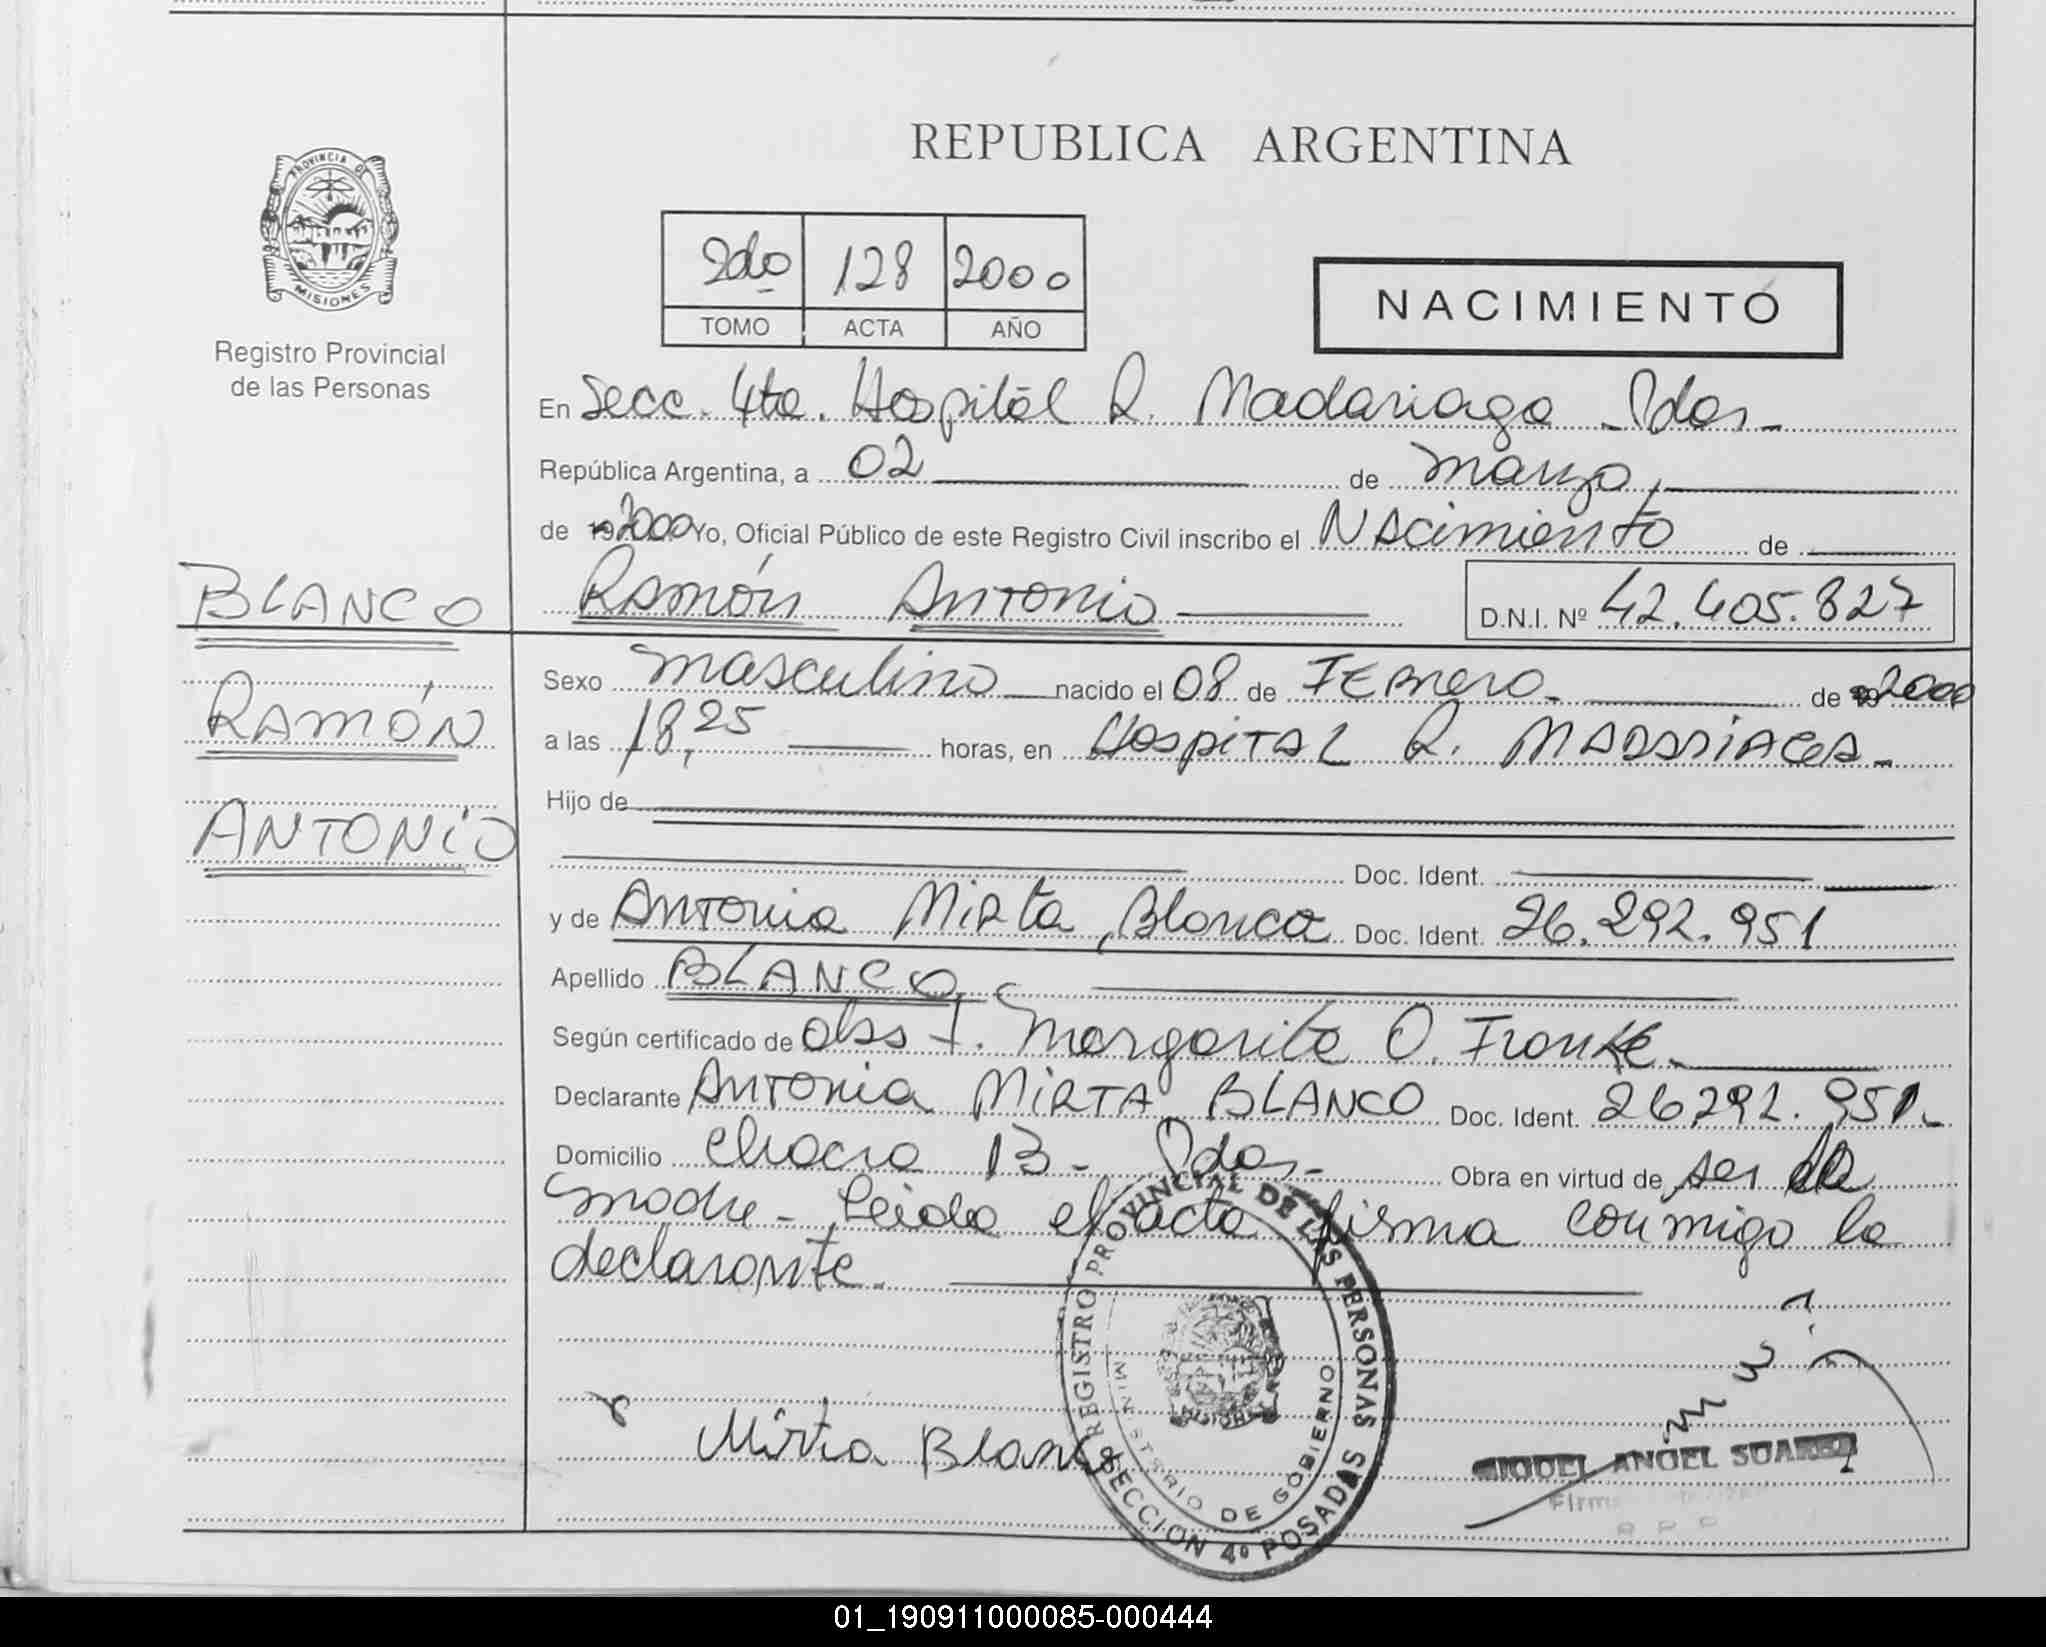 REPUBLICA ARGENTINA
PROVINCIA DE
MISIONES
Registro Provincial
de las Personas
2do 128 2000
TOMO ACTA AÑO
NACIMIENTO
En Secc. 4ta. Hospital R. Madariaga - Pdas -
República Argentina, a 02 de marzo,
de 19 2000 Yo, Oficial Público de este Registro Civil inscribo el NAcimiento de
BLANCO
RAMÓN
ANTONIO
Ramón Antonio D.N.I. Nº 42.405.827
Sexo masculino nacido el 08 de FEBrero. de 19 2000
a las 18,25 horas, en HospiTAL R. MADARIAGA -
Hijo de
Doc. Ident.
y de Antonia Mirta, Blanco Doc. Ident. 26.292.951
Apellido BLANCO,
Según certificado de obst. Margarita O. Franke.
Declarante Antonia MiRTA BLANCO Doc. Ident. 26292.951.
Domicilio chacra 13 - Pdas - Obra en virtud de ser la
madre - Leida el acta firma conmigo la
declarante.
Mirta Blanco
REGISTRO PROVINCIAL DE LAS PERSONAS
MINISTERIO DE GOBIERNO
SECCION 4º POSADAS
MIGUEL ANGEL SUAREZ
01_190911000085-000444